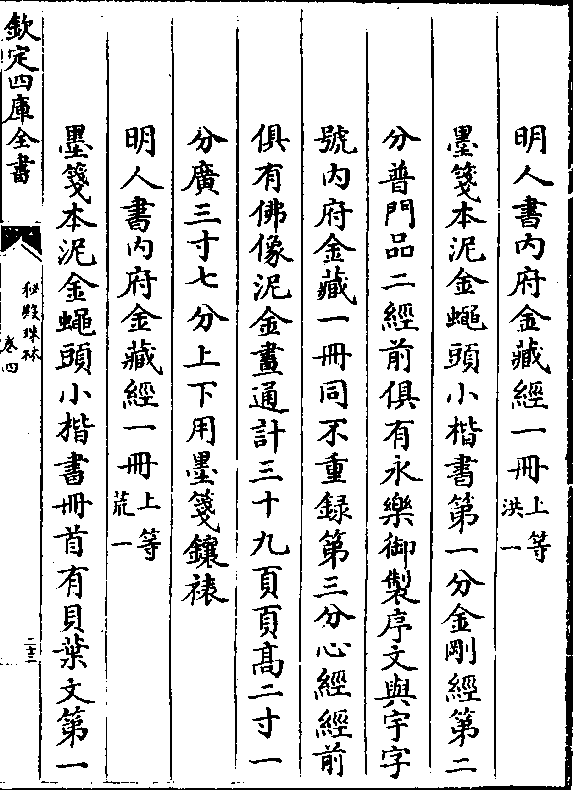 明人書内府金藏經一冊上等洪一
墨箋本泥金蠅頭小楷書第一分金剛經第二
分普門品二經前俱有永樂御製序文與宇字
號内府金藏一冊同不重録第三分心經經前
俱有佛像泥金畫通計三十九頁頁髙二寸一
分廣三寸七分上下用墨箋鑲裱
明人書内府金藏經一冊上等荒一
墨箋本泥金蠅頭小楷書冊首有貝葉文第一
欽定四庫全書
秘殿珠林
卷四
二十三